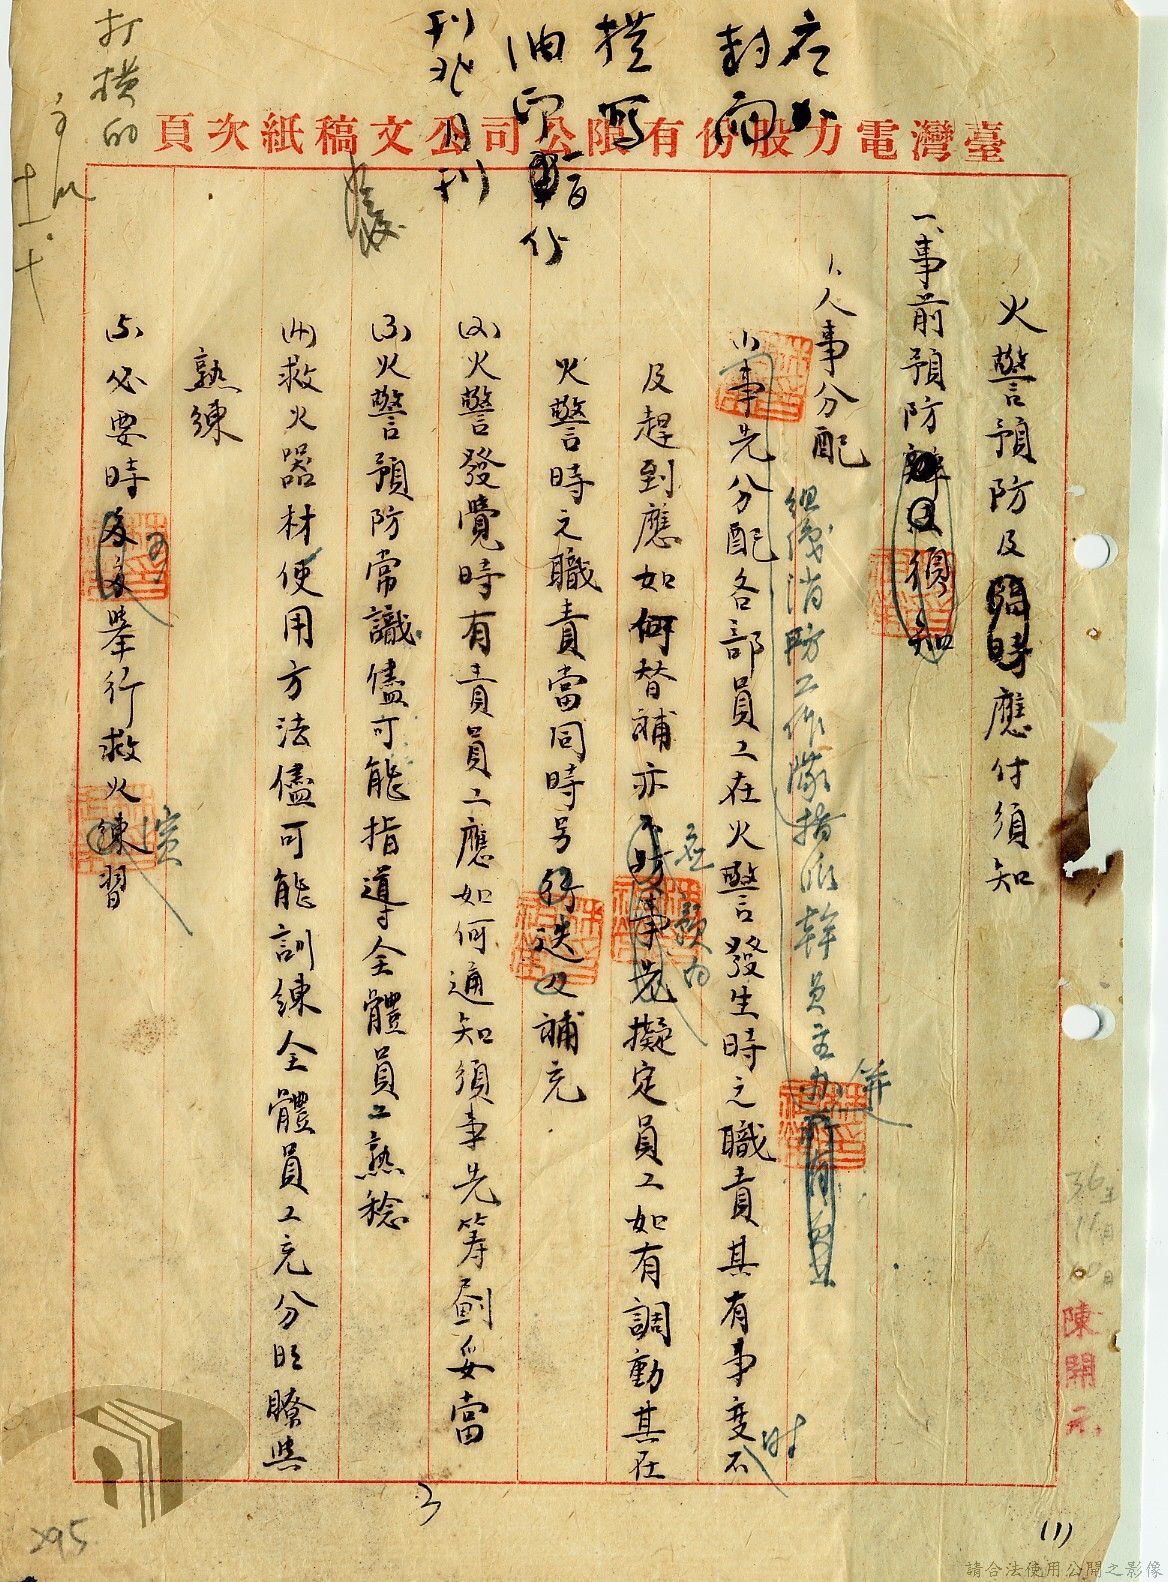 臺灣電力股份有限公司公文稿紙次頁
封面
橫寫
油印
刊北月刊
打橫的
火警預防及臨時應付須知
一、事前預防須知
1、人事分配
組織消防工作隊指派幹員主办
(1)事先分配各部員工在火警發生時之職責其有事度不
時
及趕到應如何替補亦應事先擬定員工如有調動其在
火警時之職責當同時另行遴選補充
(2)火警發覺時有責員工應如何通知須事先籌劃妥當
(3)火警預防常識儘可能指導全體員工熟稔
(4)救火器材使用方法儘可能訓練全體員工充分明瞭與
熟練
(5)必要時舉行救火演習
36年
11月
陳開元
295
3
(1)
請合法使用公開之影像